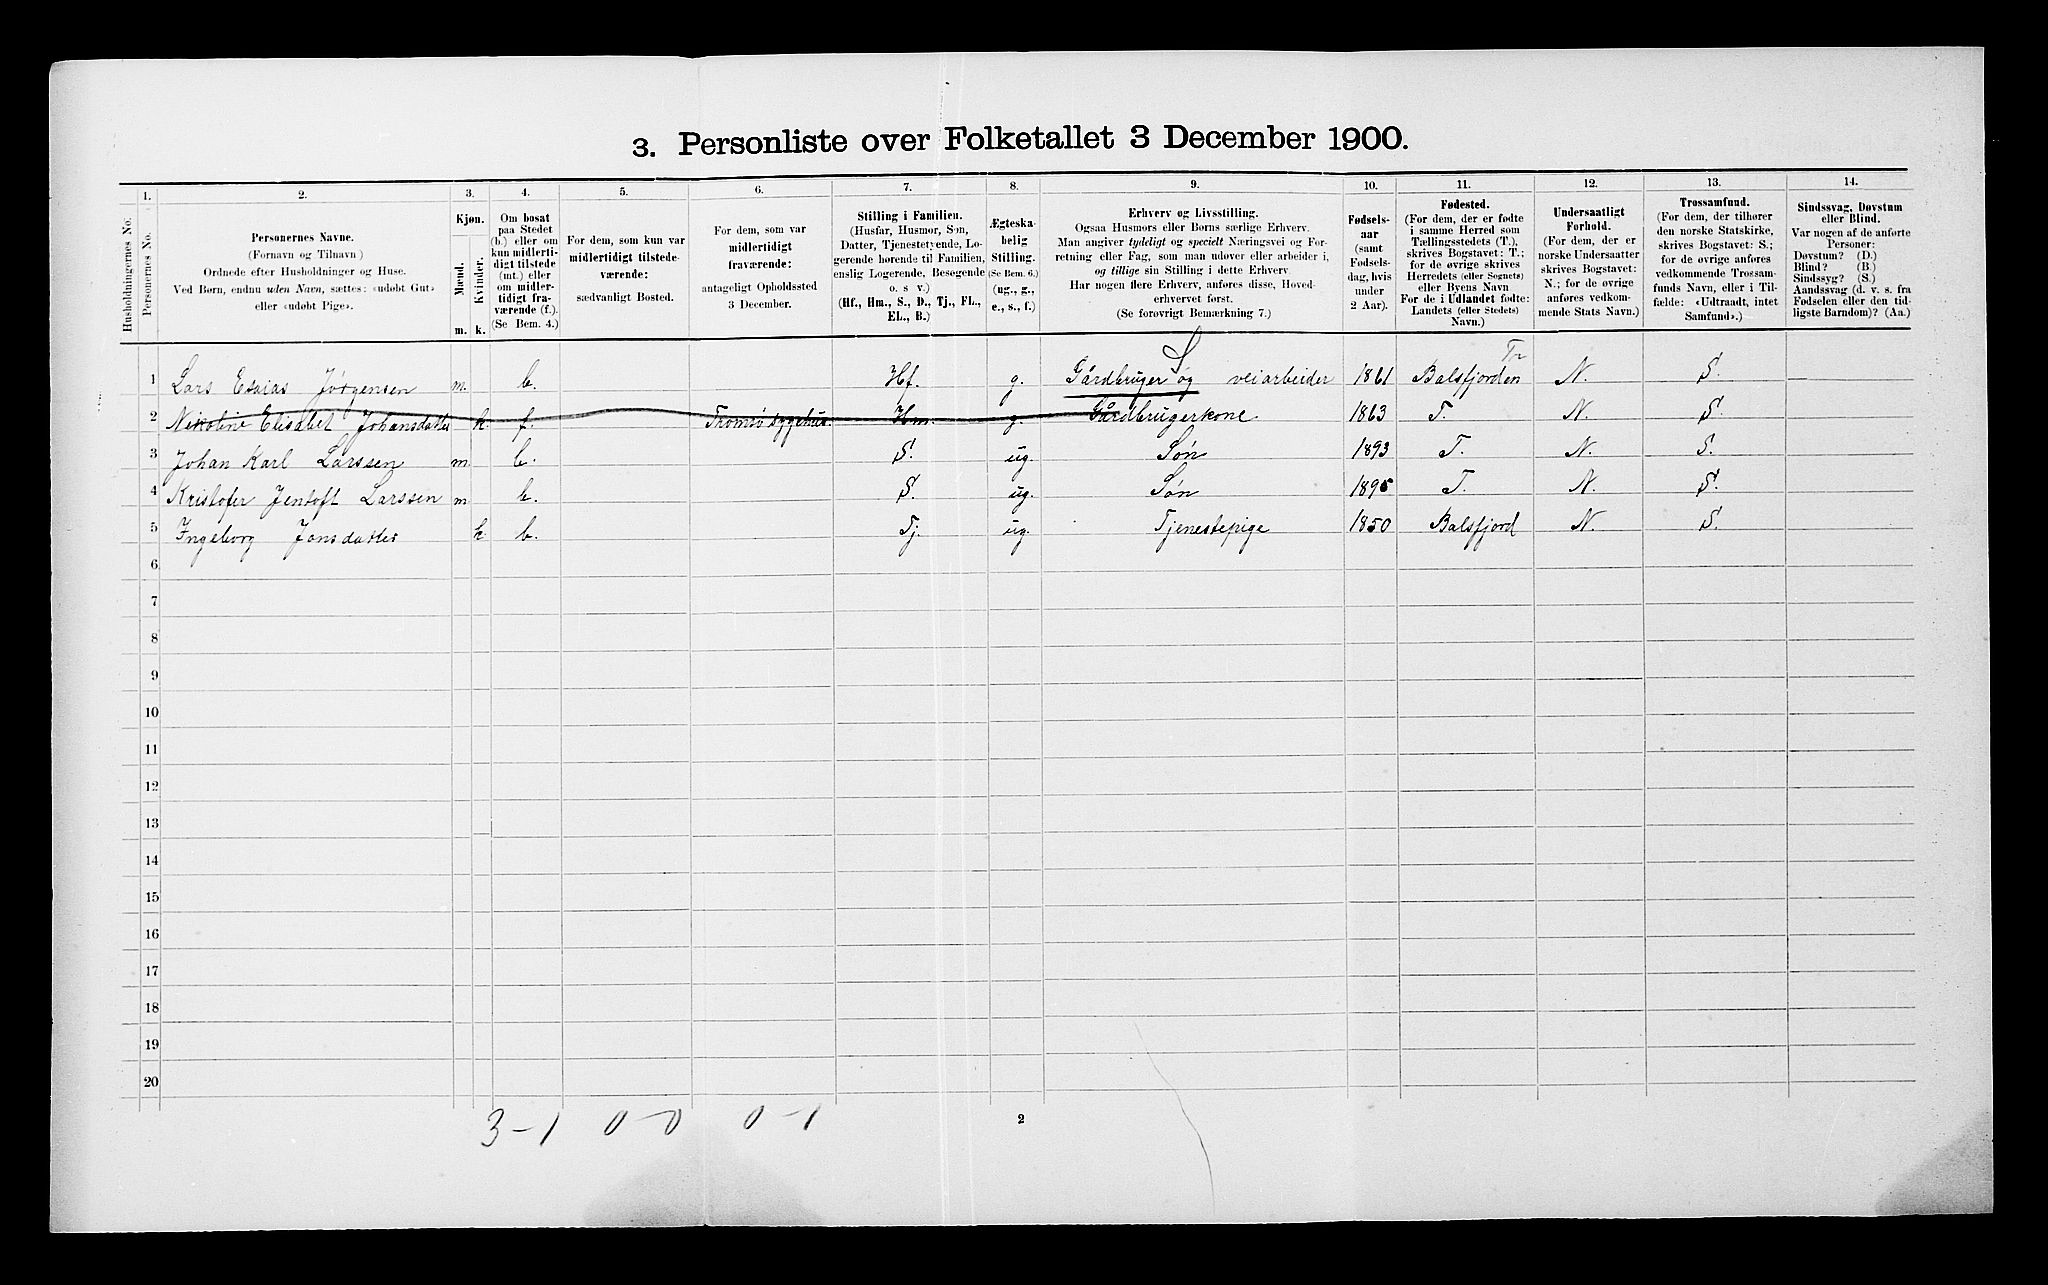 3. Personliste over Folketallet 3 December 1900.
1. 2. 3. 4. 5. 6. 7. 8. 9. 10. 11. 12. 13. 14.
Husholdningernes No.
Personernes No.
Personernes Navne.
(Fornavn og Tilnavn)
Ordnede efter Husholdninger og Huse.
Ved Børn, endnu uden Navn, sættes: «udøbt Gut»
eller «udøbt Pige».
Kjøn.
Mænd. Kvinder.
m. k.
Om bosat
paa Stedet
(b.) eller om
kun midlerti-
digt tilstede
(mt.) eller
om midler-
tidigt fra-
værende (f.).
(Se Bem. 4.)
For dem, som kun var
midlertidigt tilstede-
værende:
sædvanligt Bosted.
For dem, som var
midlertidigt
fraværende:
antageligt Opholdssted
3 December.
Stilling i Familien.
(Husfar, Husmor, Søn,
Datter, Tjenestetyende, Lo-
gerende hørende til Familien,
enslig Logerende, Besøgende
o. s v.)
(Hf., Hm., S., D., Tj., FL.,
EL., B.)
Ægteska-
belig
Stilling.
(Se Bem. 6.)
(ug., g.,
e., s., f.)
Erhverv og Livsstilling.
Ogsaa Husmors eller Børns særlige Erhverv.
Man angiver tydeligt og specielt Næringsvei og For-
retning eller Fag, som man udøver eller arbeider i,
og tillige sin Stilling i dette Erhverv.
Har nogen flere Erhverv, anføres disse, Hoved-
erhvervet først.
(Se forøvrigt Bemærkning 7.)
Fødsels-
aar
(samt
Fødsels-
dag, hvis
under
2 Aar).
Fødested.
(For dem, der er fødte
i samme Herred som
Tællingsstedets (T.),
skrives Bogstavet: T.;
for de øvrige skrives
Herredets (eller Sognets)
eller Byens Navn
For de i Udlandet fødte:
Landets (eller Stedets)
Navn.)
Undersaatligt
Forhold.
(For dem, der er
norske Undersaatter
skrives Bogstavet:
N.; for de øvrige
anføres vedkom-
mende Stats Navn.)
Trossamfund.
(For dem, der tilhører
den norske Statskirke,
skrives Bogstavet: S.;
for de øvrige anføres
vedkommende Trossam-
funds Navn, eller i Til-
fælde: «Udtraadt, intet
Samfund».)
Sindssvag, Døvstum
eller Blind.
Var nogen af de anførte
Personer:
Døvstum? (D.)
Blind? (B.)
Sindssyg? (S.)
Aandssvag (d. v. s. fra
Fødselen eller den tid-
ligste Barndom)? (Aa.)
1 Lars Esaias Jørgensen m. b. Hf. g. Gårdbruger og veiarbeider 1861 Balsfjorden Tr N. S.
2 Nikoline Elisabet Johansdatter k. f. Tromsö sygehus. Hm. g. Gårdbrugerkone 1863 T. N. S.
3 Johan Karl Larssen m. b. S. ug. Søn 1893 T. N. S.
4 Kristofer Jentoft Larssen m b. S. ug. Søn 1895 T. N. S.
5 Ingeborg Jonsdatter k. b. Tj. ug. Tjenestepige 1850 Balsfjord N. S.
6
7
8
9
10
11
12
13
14
15
16
17
18
19
20
3-1 0-0 0-1
2